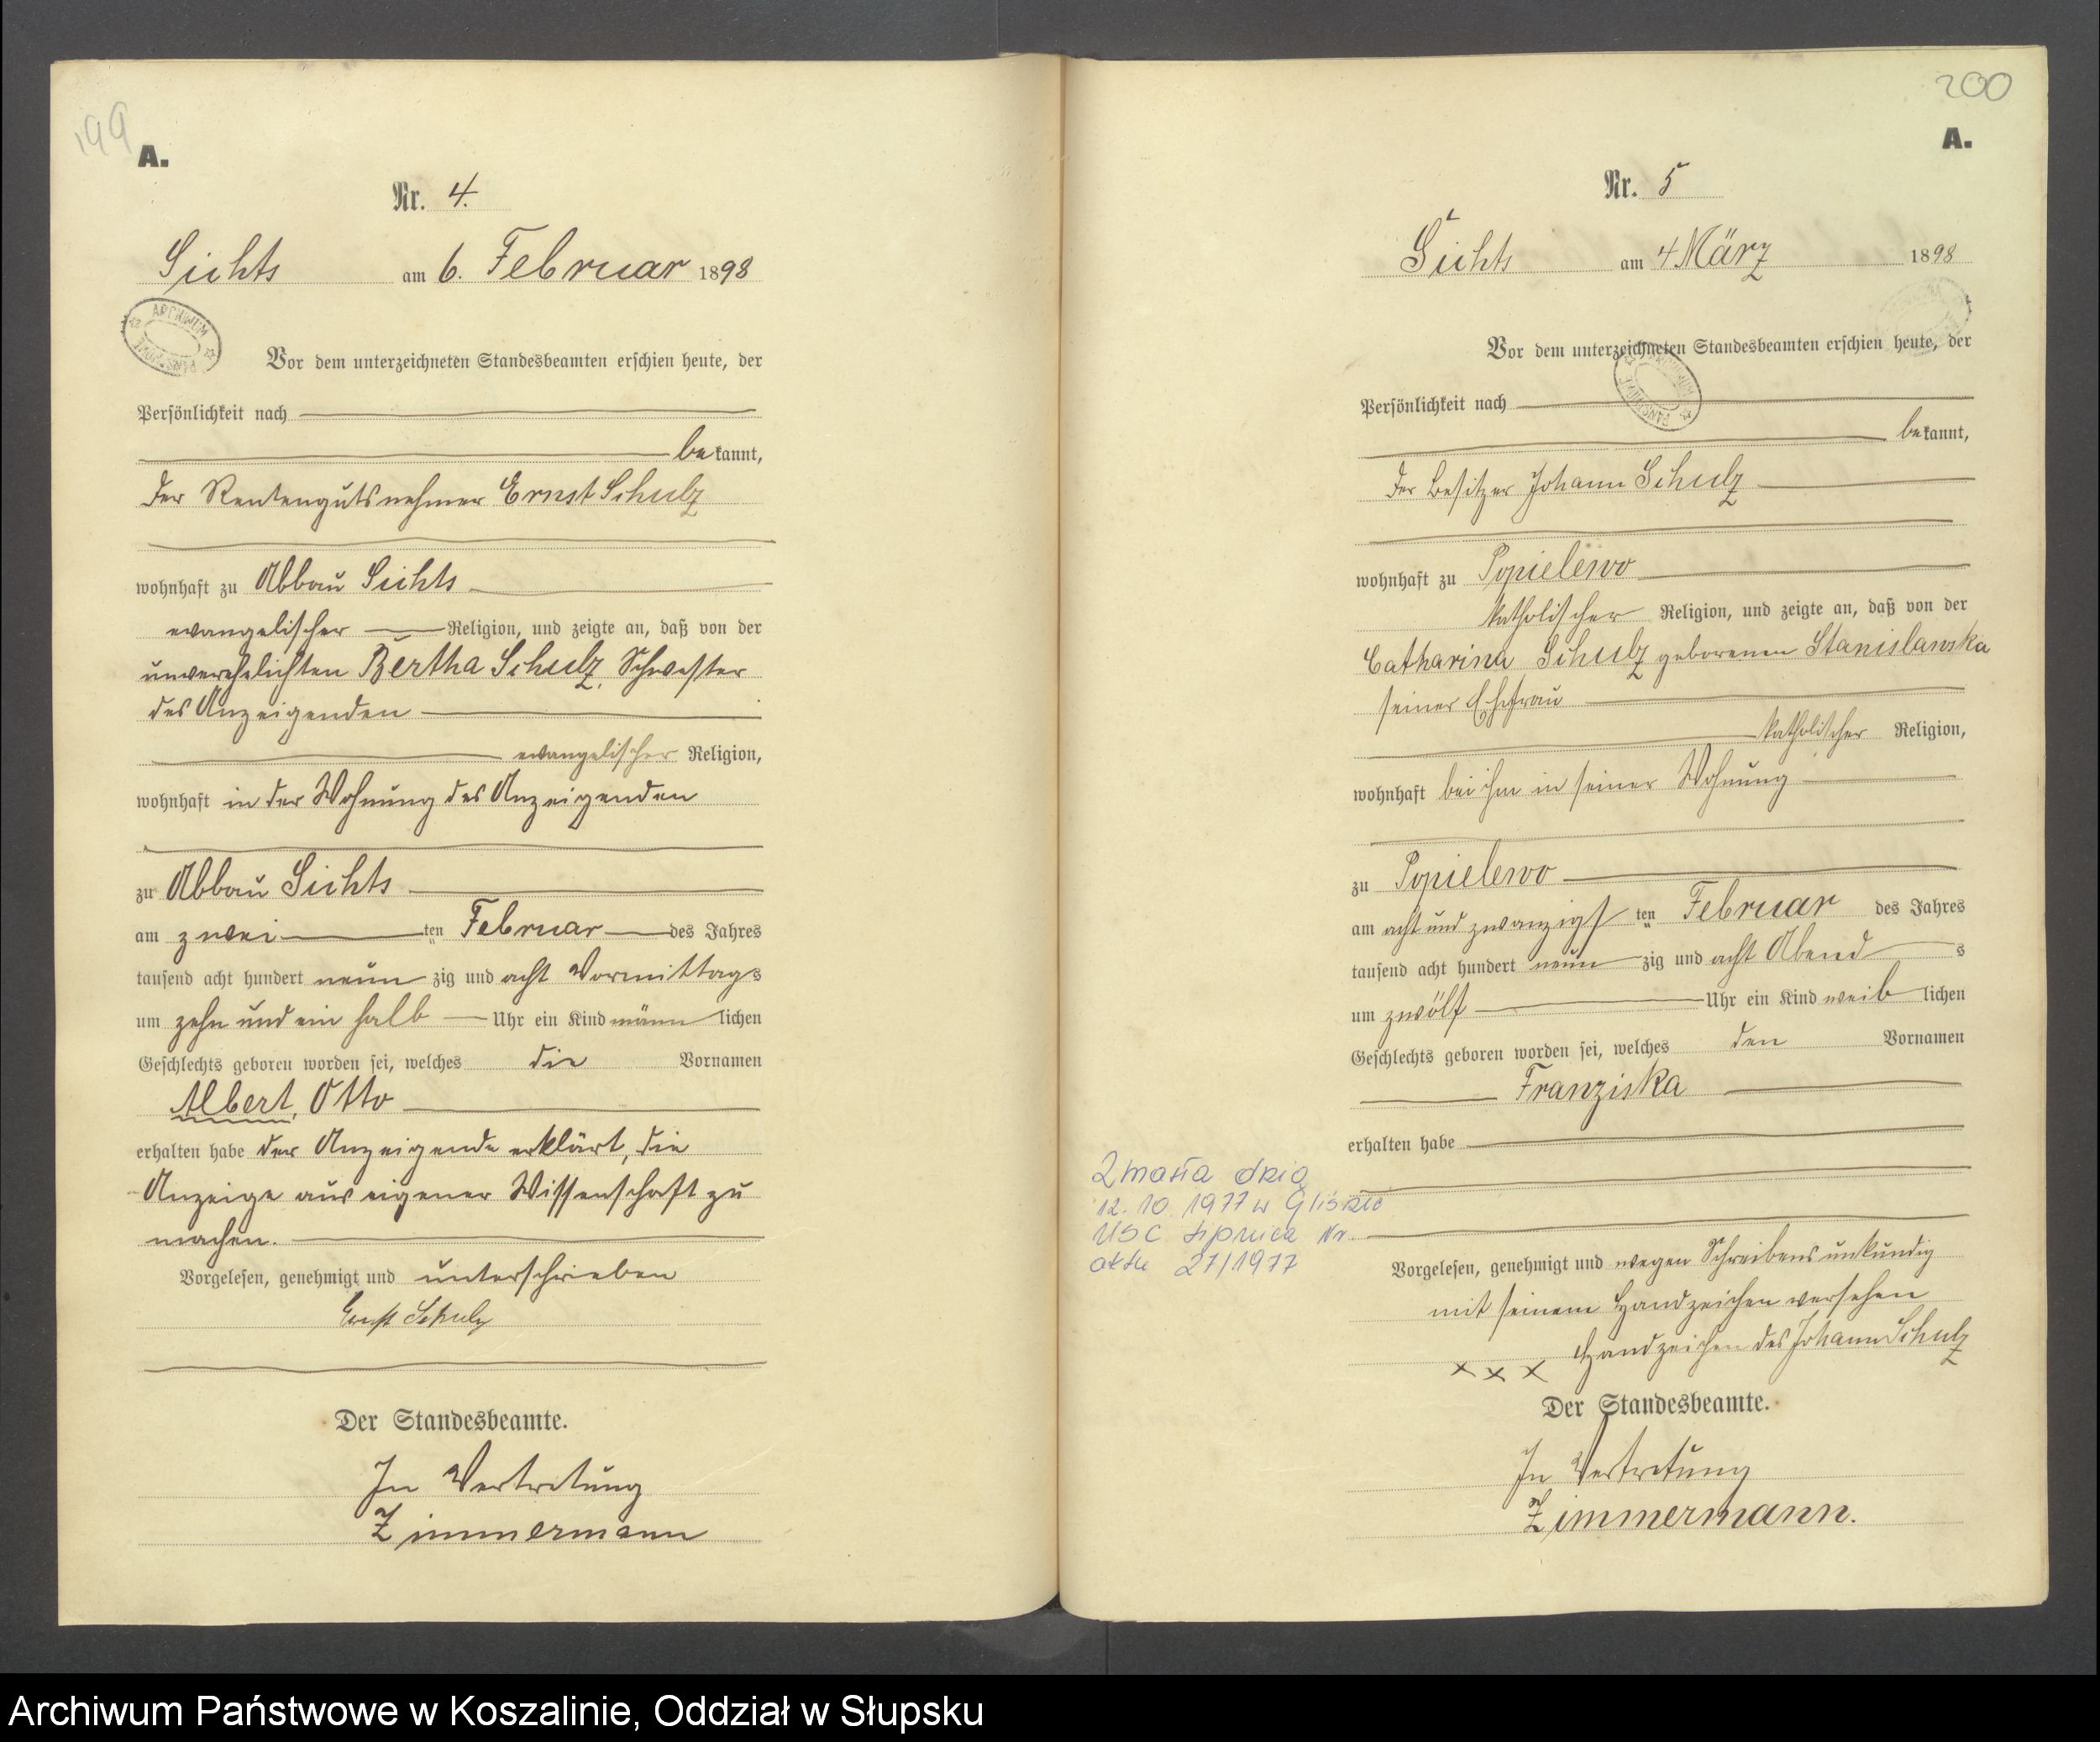 199
A.
Nr. 4.
Sichts am 6. Februar 1898
ARCHIWUM PAŃSTWOWE
Vor dem unterzeichneten Standesbeamten erschien heute, der
Persönlichkeit nach
bekannt,
der Rentengutsnehmer Ernst Schulz
wohnhaft zu Abbau Sichts
evangelischer Religion, und zeigte an, daß von der
unverehelichten Bertha Schulz, Schwester
des Anzeigenden
evangelischer Religion,
wohnhaft in der Wohnung des Anzeigenden
zu Abbau Sichts
am zwei ten Februar des Jahres
tausend acht hundert neun zig und acht Vormittags
um zehn und ein halb Uhr ein Kind männ lichen
Geschlechts geboren worden sei, welches die Vornamen
Albert, Otto
erhalten habe der Anzeigende erklärt, die
Anzeige aus eigener Wissenschaft zu
machen.
Vorgelesen, genehmigt und unterschrieben
Ernst Schulz
Der Standesbeamte.
In Vertretung
Zimmermann
200
A.
Nr. 5
Sichts am 4 März 1898
Vor dem unterzeichneten Standesbeamten erschien heute, der
Persönlichkeit nach
bekannt,
der Besitzer Johann Schulz
wohnhaft zu Popielewo
katholischer Religion, und zeigte an, daß von der
Catharina Schulz geborenen Stanislawska
seiner Ehefrau
katholischer Religion,
wohnhaft bei ihm in seiner Wohnung
zu Popielewo
am acht und zwanzigs ten Februar des Jahres
tausend acht hundert neun zig und acht Abend s
um zwölf Uhr ein Kind weib lichen
Geschlechts geboren worden sei, welches den Vornamen
Franziska
erhalten habe
Zmarła dnia
12.10.1977 w Gliśnie
USC Lipnica Nr.
aktu 27/1977
Vorgelesen, genehmigt und wegen Schreibensunkundig
mit seinem Handzeichen versehen
x x x Handzeichen des Johann Schulz
Der Standesbeamte.
In Vertretung
Zimmermann.
Archiwum Państwowe w Koszalinie, Oddział w Słupsku